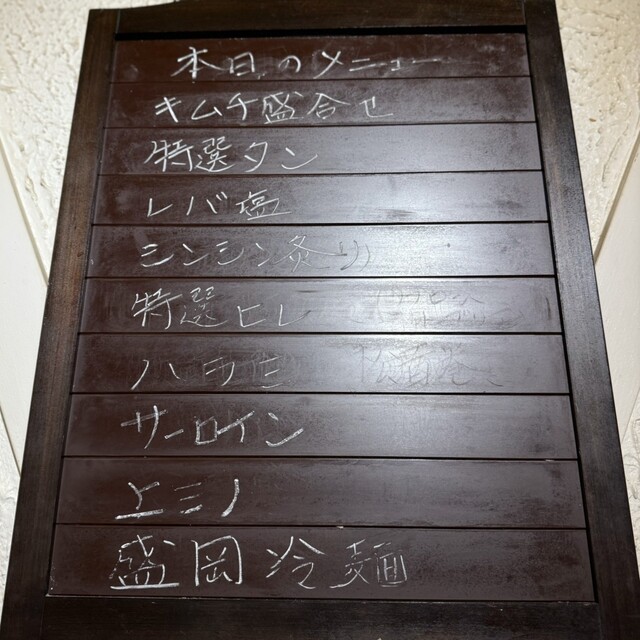 本日のメニュー
キムチ盛合せ
特選タン
レバ塩
シンシン炙り
特選ヒレ
ハラミ
サーロイン
上ミノ
盛岡冷麺